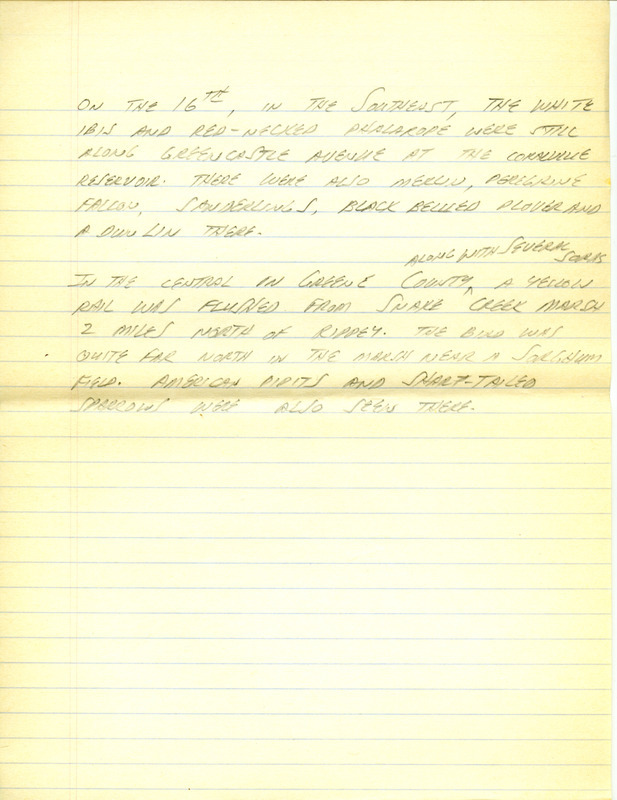 ON THE 16TH, IN THE SOUTHEAST, THE WHITE
IBIS AND RED-NECKED PHALAROPE WERE STILL
ALONG GREENCASTLE AVENUE AT THE CORALVILLE
RESERVOIR. THERE WERE ALSO MERLIN, PEREGRINE
FALCON, SANDERLINGS, BLACK BELLIED PLOVER AND
A DUNLIN THERE.
ALONG WITH SEVERAL
SORAS
IN THE CENTRAL IN GREENE COUNTY ^ A YELLOW
RAIL WAS FLUSHED FROM SNAKE CREEK MARSH
2 MILES NORTH OF RIPPEY. THE BIRD WAS
QUITE FAR NORTH IN THE MARSH NEAR A SORGHUM
FIELD. AMERICAN PIPITS AND SHARP-TAILED
SPARROWS WERE ALSO SEEN THERE.